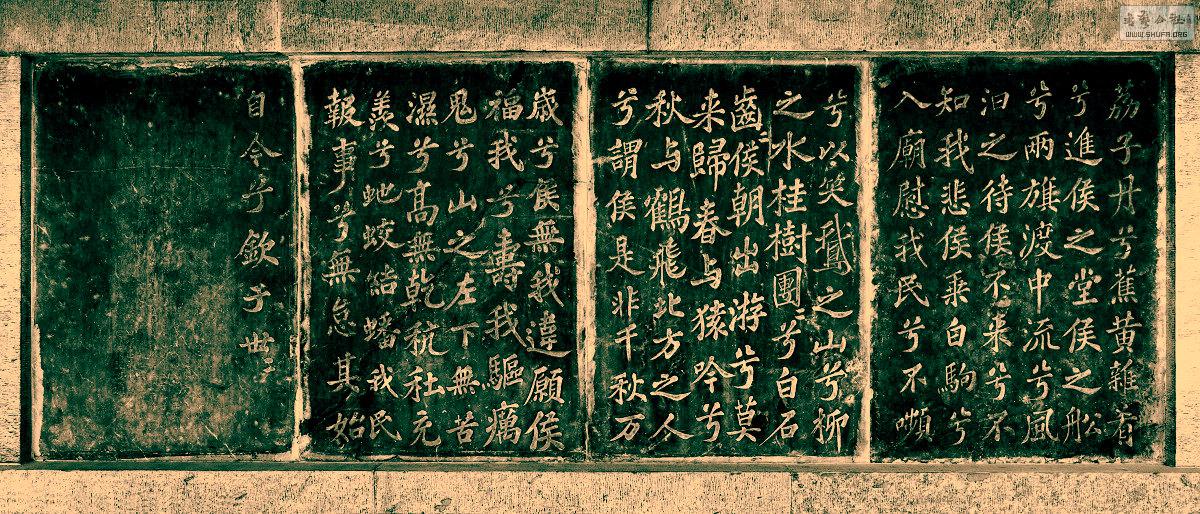 荔子丹兮蕉黄雜肴
兮進侯之堂侯之船
兮兩旗渡中流兮風
汩之待侯不来兮不
知我悲侯乘白駒兮
入廟慰我民兮不嚬
兮以笑鵝之山兮柳
之水桂樹團〻兮白石
齒〻侯朝出游兮莫
来歸春与猿吟兮
秋与鶴飛北方之人
兮謂侯是非千秋万
歲兮侯無我違願侯
福我兮壽我驅癘
鬼兮山之左下無苦
濕兮高無乾秔稌充
羡兮虵蛟結蟠我民
報事兮無怠其始
自今兮欽于世〻
WWW.SHUFA.ORG